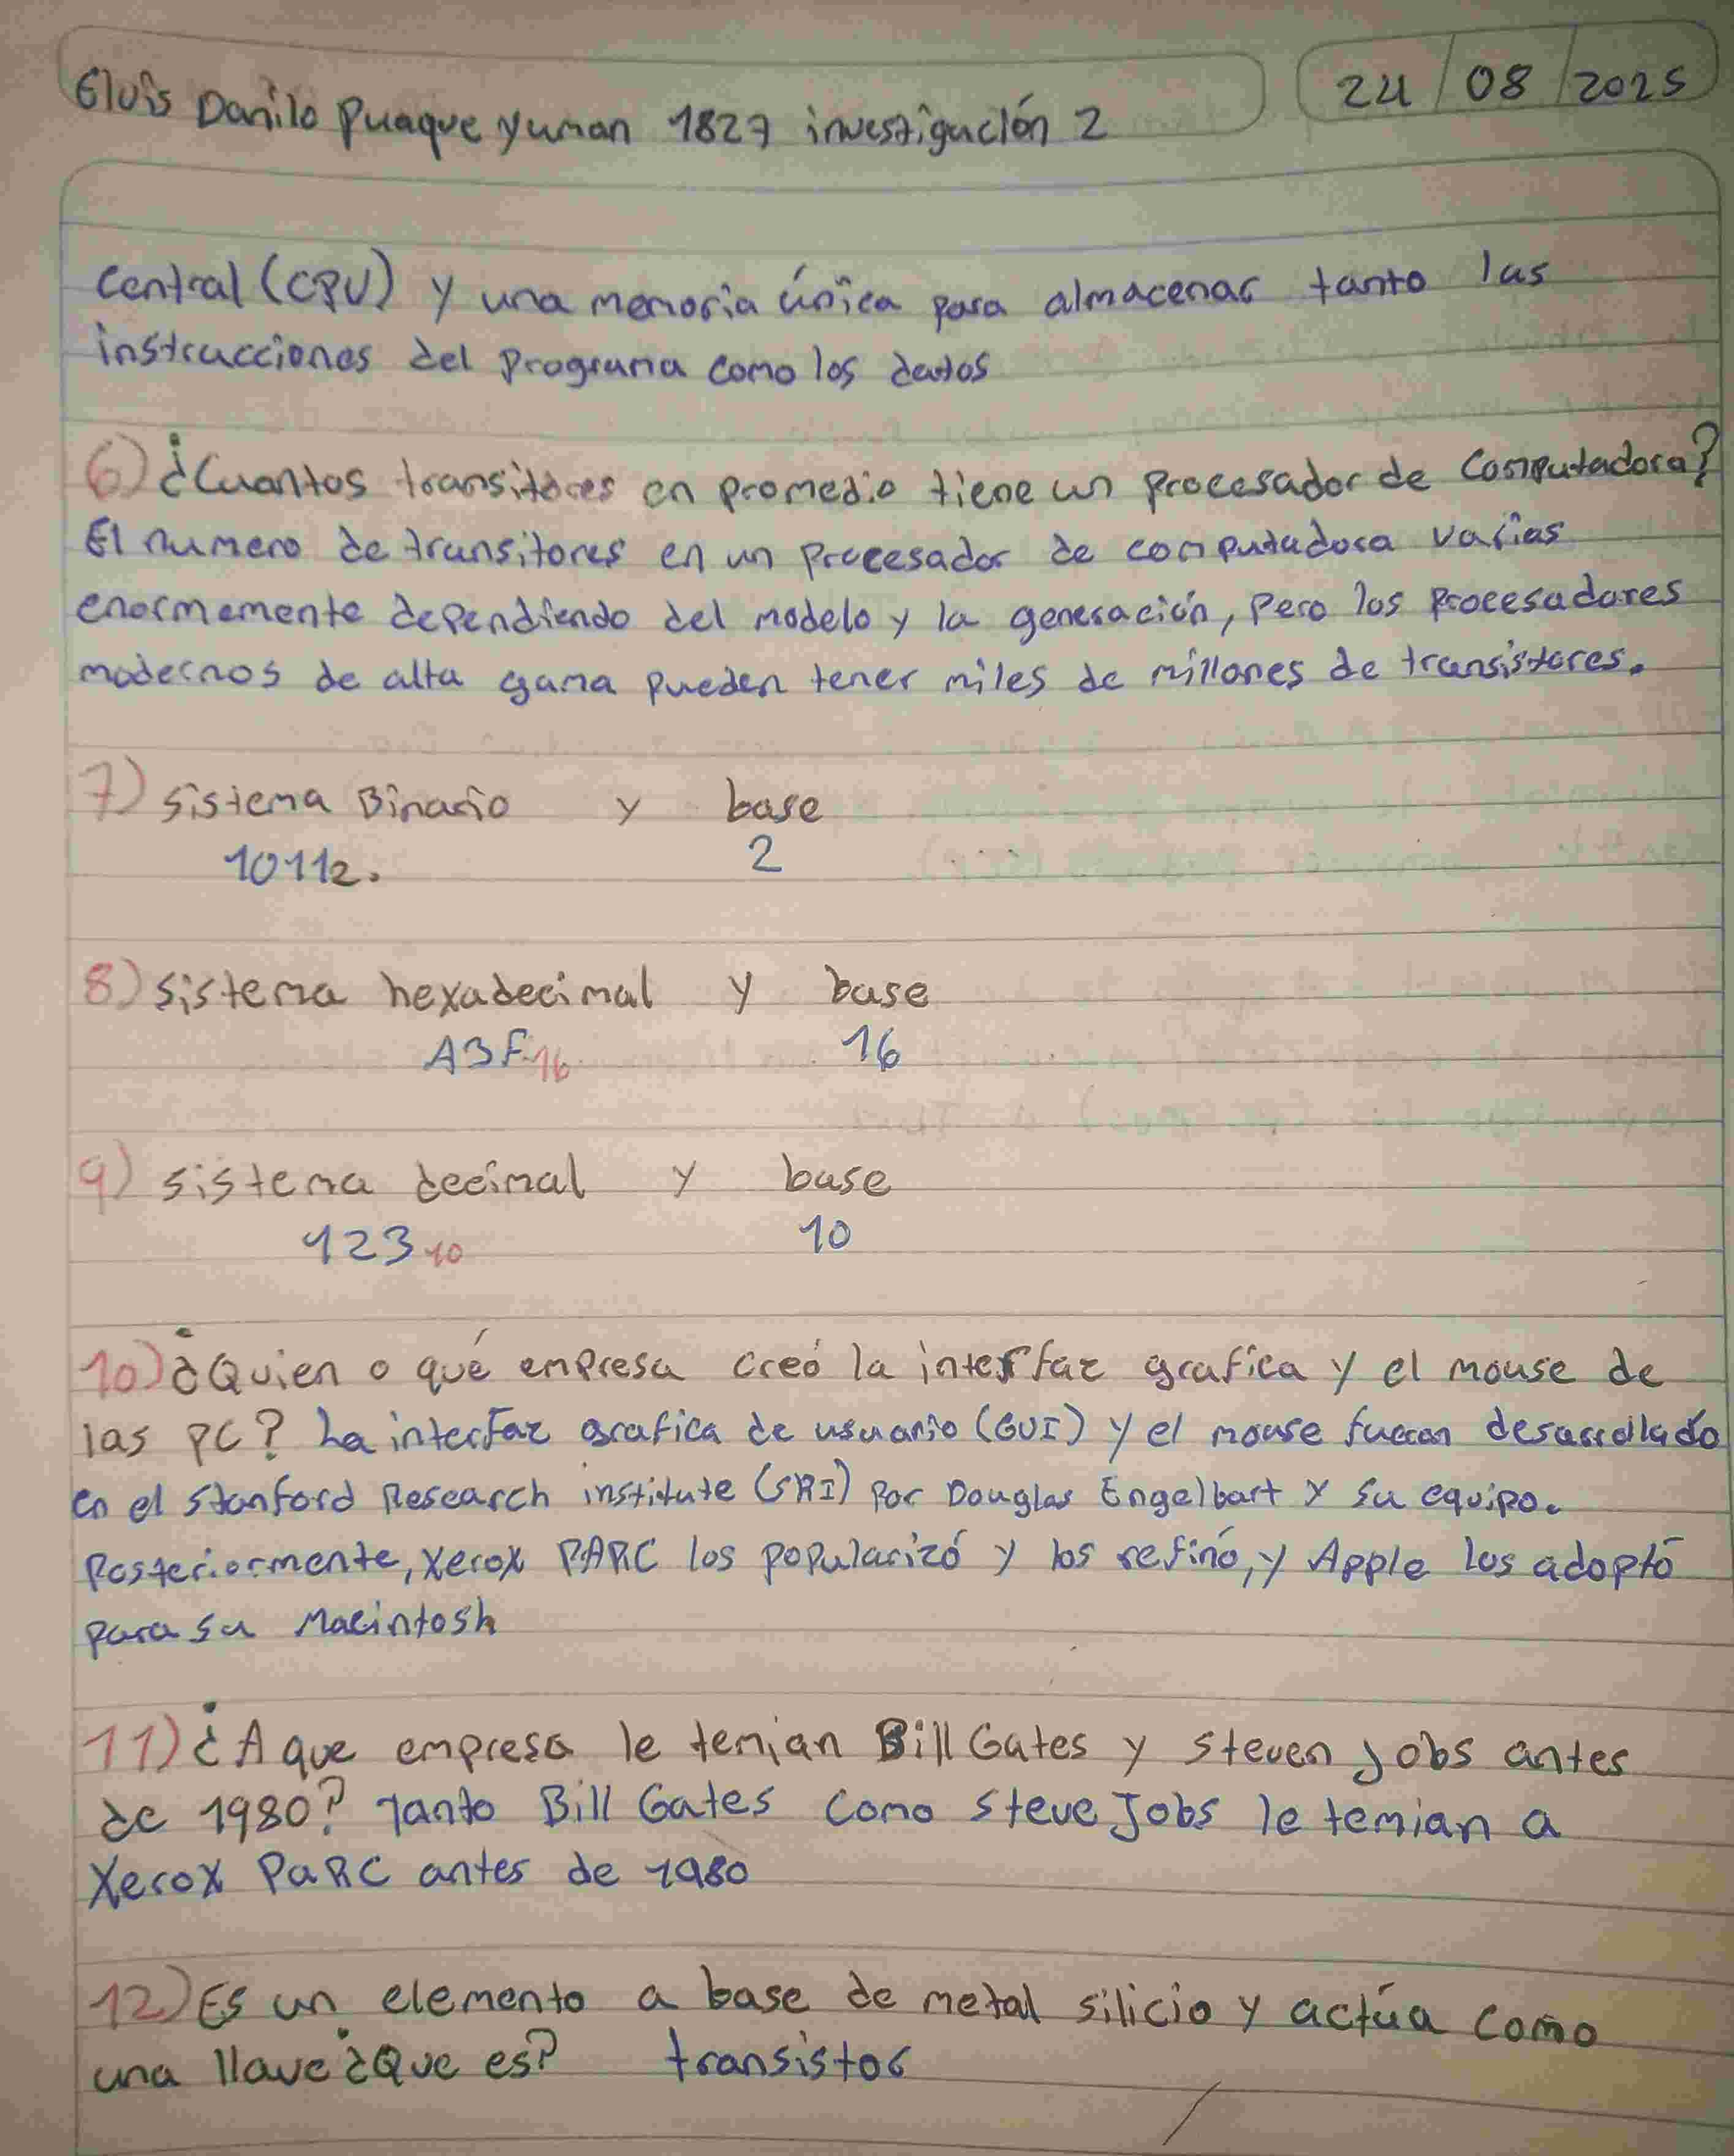 Elvis Danilo Puaque yuman 1827 investigación 2
24/08/2025
Central (CPU) y una memoria única para almacenar tanto las
instrucciones del programa como los datos
6) ¿Cuantos transitores en promedio tiene un procesador de computadora?
El numero de transitores en un procesador de computadora varias
enormemente dependiendo del modelo y la generación, pero los procesadores
modernos de alta gama pueden tener miles de millones de transistores.
7) sistema Binario y base
1011₂. 2
8) sistema hexadecimal y base
A3F₁₆ 16
9) sistema decimal y base
123₁₀ 10
10) ¿Quien o qué empresa creó la interfaz grafica y el mouse de
las PC? La interfaz grafica de usuario (GUI) y el mouse fueron desarrollado
en el Stanford Research institute (SRI) por Douglas Engelbart y su equipo.
Posteriormente, Xerox PARC los popularizó y los refinó, y Apple los adoptó
para su Macintosh
11) ¿A que empresa le temian Bill Gates y Steven Jobs antes
de 1980? Tanto Bill Gates como Steve Jobs le temian a
Xerox PaRC antes de 1980
12) Es un elemento a base de metal silicio y actúa como
una llave ¿Que es? transistor